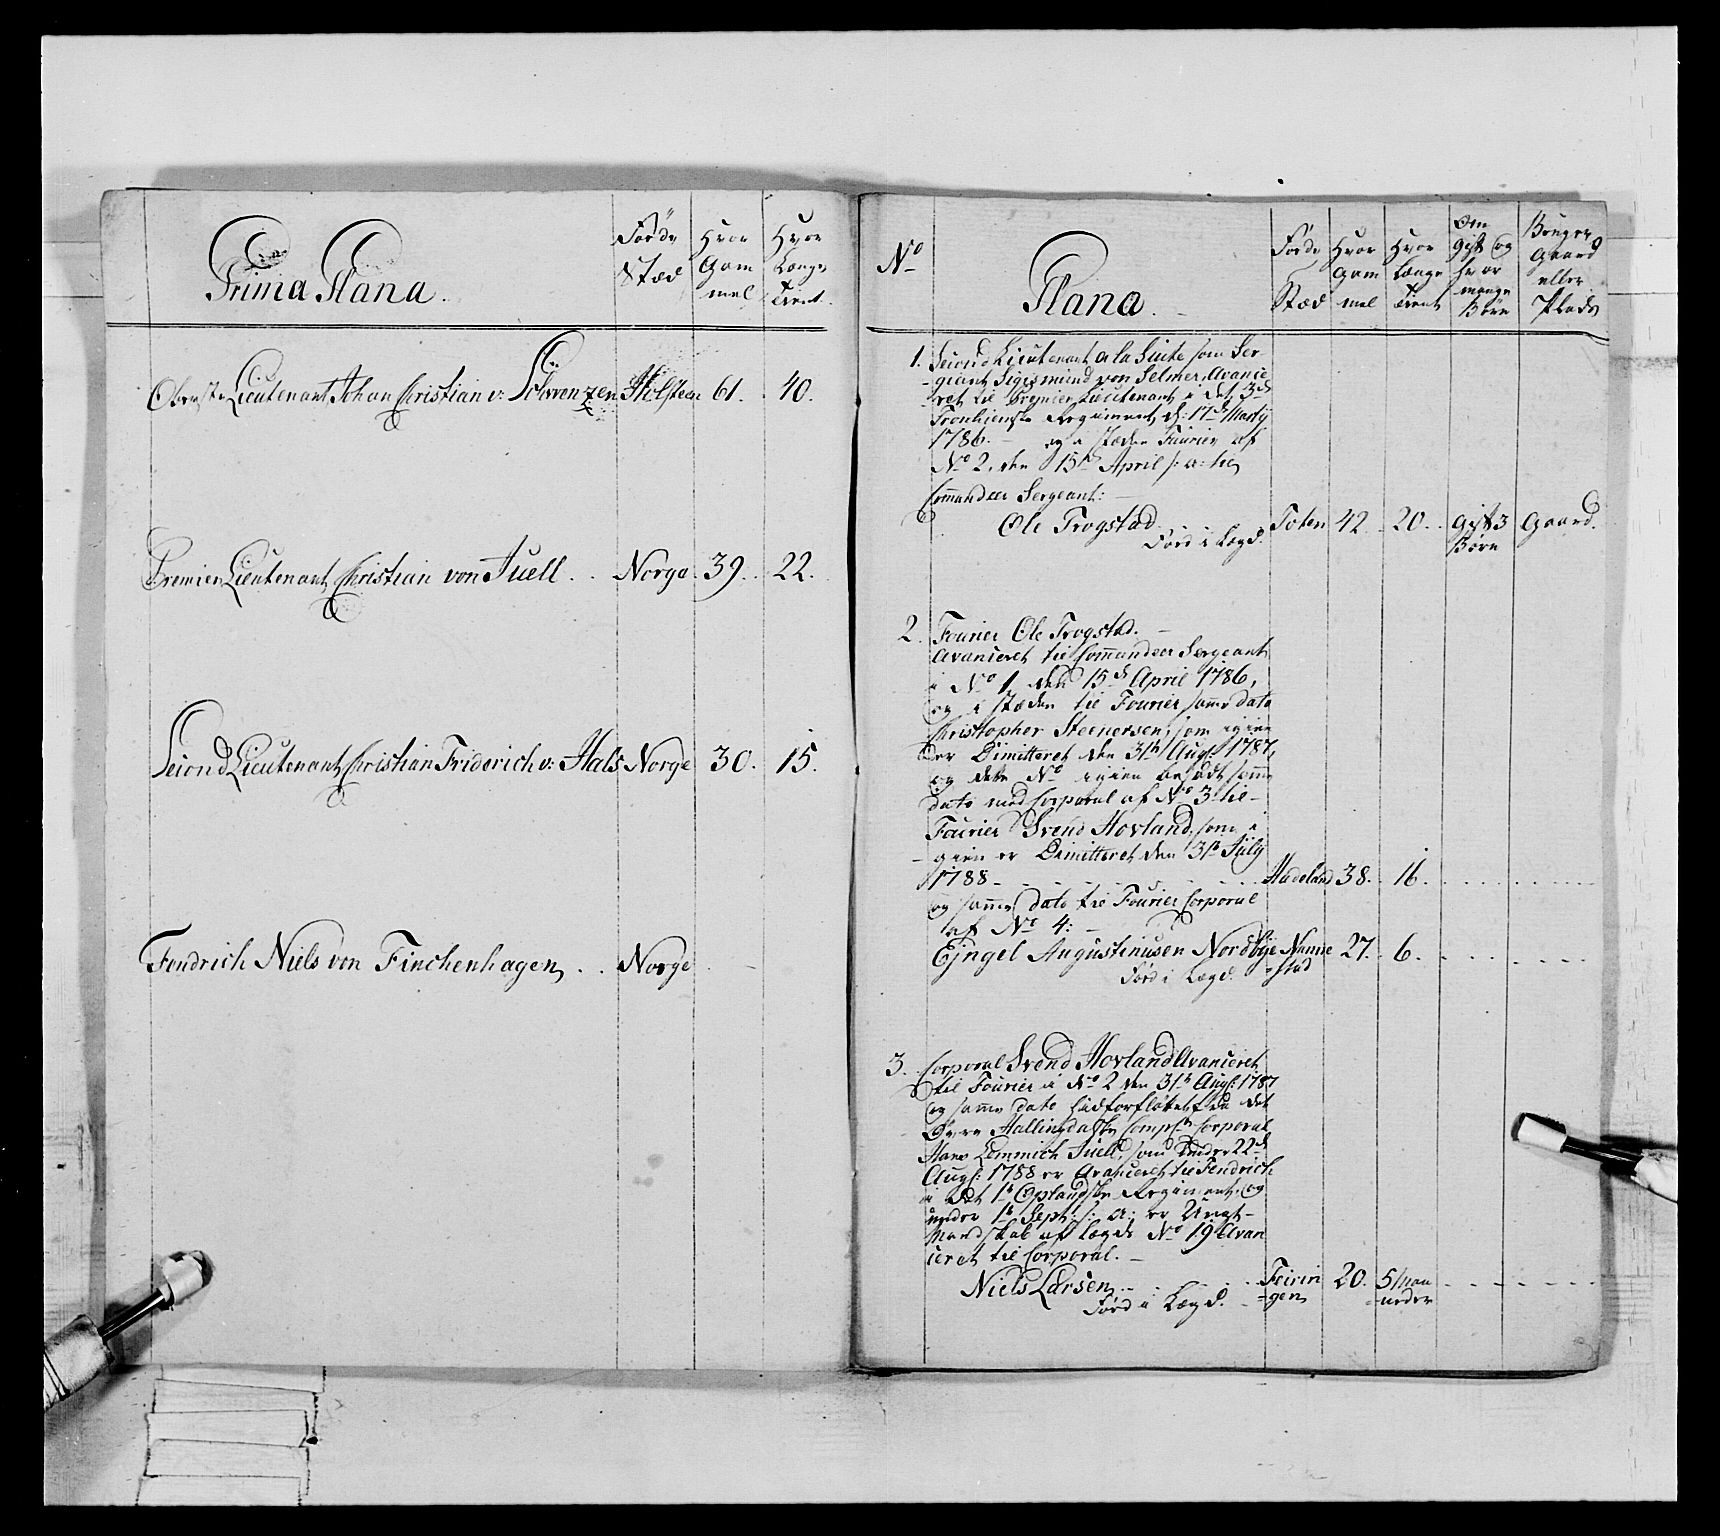 Prima Plana.
Føde Stæd
Hvor Gam mel
Hvor Længe Tient.
Oberste Lieutenant Johan Christian v: Schwenzen Holsteen 61. 40.
Premier Lieutenant Christian von Juell . . Norge. 39. 22.
Second Lieutenant Christian Friderich v: Hals Norge 30. 15.
Fendrich Niels von Finchenhagen . . Norge
No
Plana.
Føde Stæd
Hvor Gam mel
Hvor Længe Tient
Om gift og hvor mange Børn
Bruger Gaard eller Plads
1. Second Lieutenant a la Suite som Ser-
-giant Sigismund von Selmer, Avance
ret til Premier Lieutenant i det 3de
Tronhiemske Regiment d: 17de Martij
1786. - og i stæden Fourier af
No 2, den 15de April s: a: til
Commandeer Sergeant: -
Ole Trogstad Toten 42. 20. gift 3 Børn Gaard.
Førd i Lægd.
2. Fourier Ole Trogstad. -
Avanceret til Commandeer Sergeant
i No 1 den 15de April 1786,
og i stæden til Fourier samme dato
Christopher Steenersen, som igien
er Dimitteret den 31te Augs: 1787,
og dette No igien besadt samme
dato med Corporal af No 3 til -
Fourier Svend Hovland, som i
-gien er Dimitteret den 31te Julij
1788 - Hadeland 38. 16.
og samme dato til Fourier Corporal
af No 4: -
Ejngel Augustinusen Nordbye Nannestad 27. 6.
Førd i Lægd.
3. Corporal Svend Hovland Avanceret
til Fourier i No 2 den 31te Augs: 1787
og samme dato hidforflötet fra det
Øvre Hallingdalske Compe Corporal
Hans Lemmich Juell, som under 22de
Augs: 1788 er Avanceret til Fendrich
i det 1te Oplandske Regiment, og
under 1te Sept: s: a: er Ungt-
Mandskab af Lægds No 19 Avan
ceret til Corporal. -
Niels Larsen Feirin 20. 5 Maa
-gen -neder
Førd i Lægd.